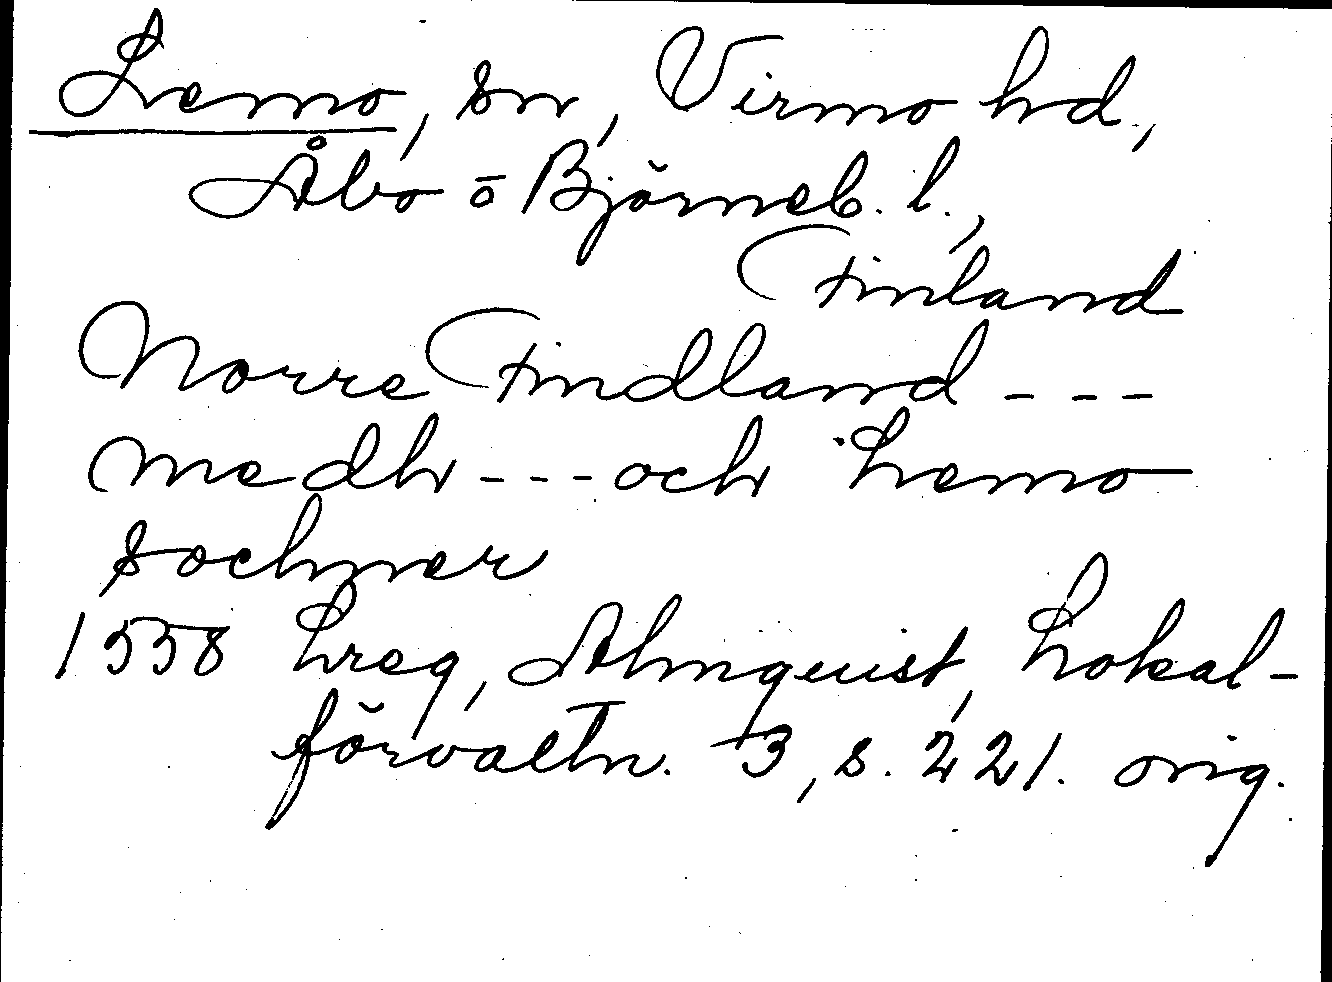 Lemo, sn, Virmo hd.,
Åbo o Björneb. l.,
Finland
Norre Findland - - -
medh - - - och Lemo
sochner
1558 Lreg, Almquist, Lokal-
förvaltn. 3, s. 221. orig.